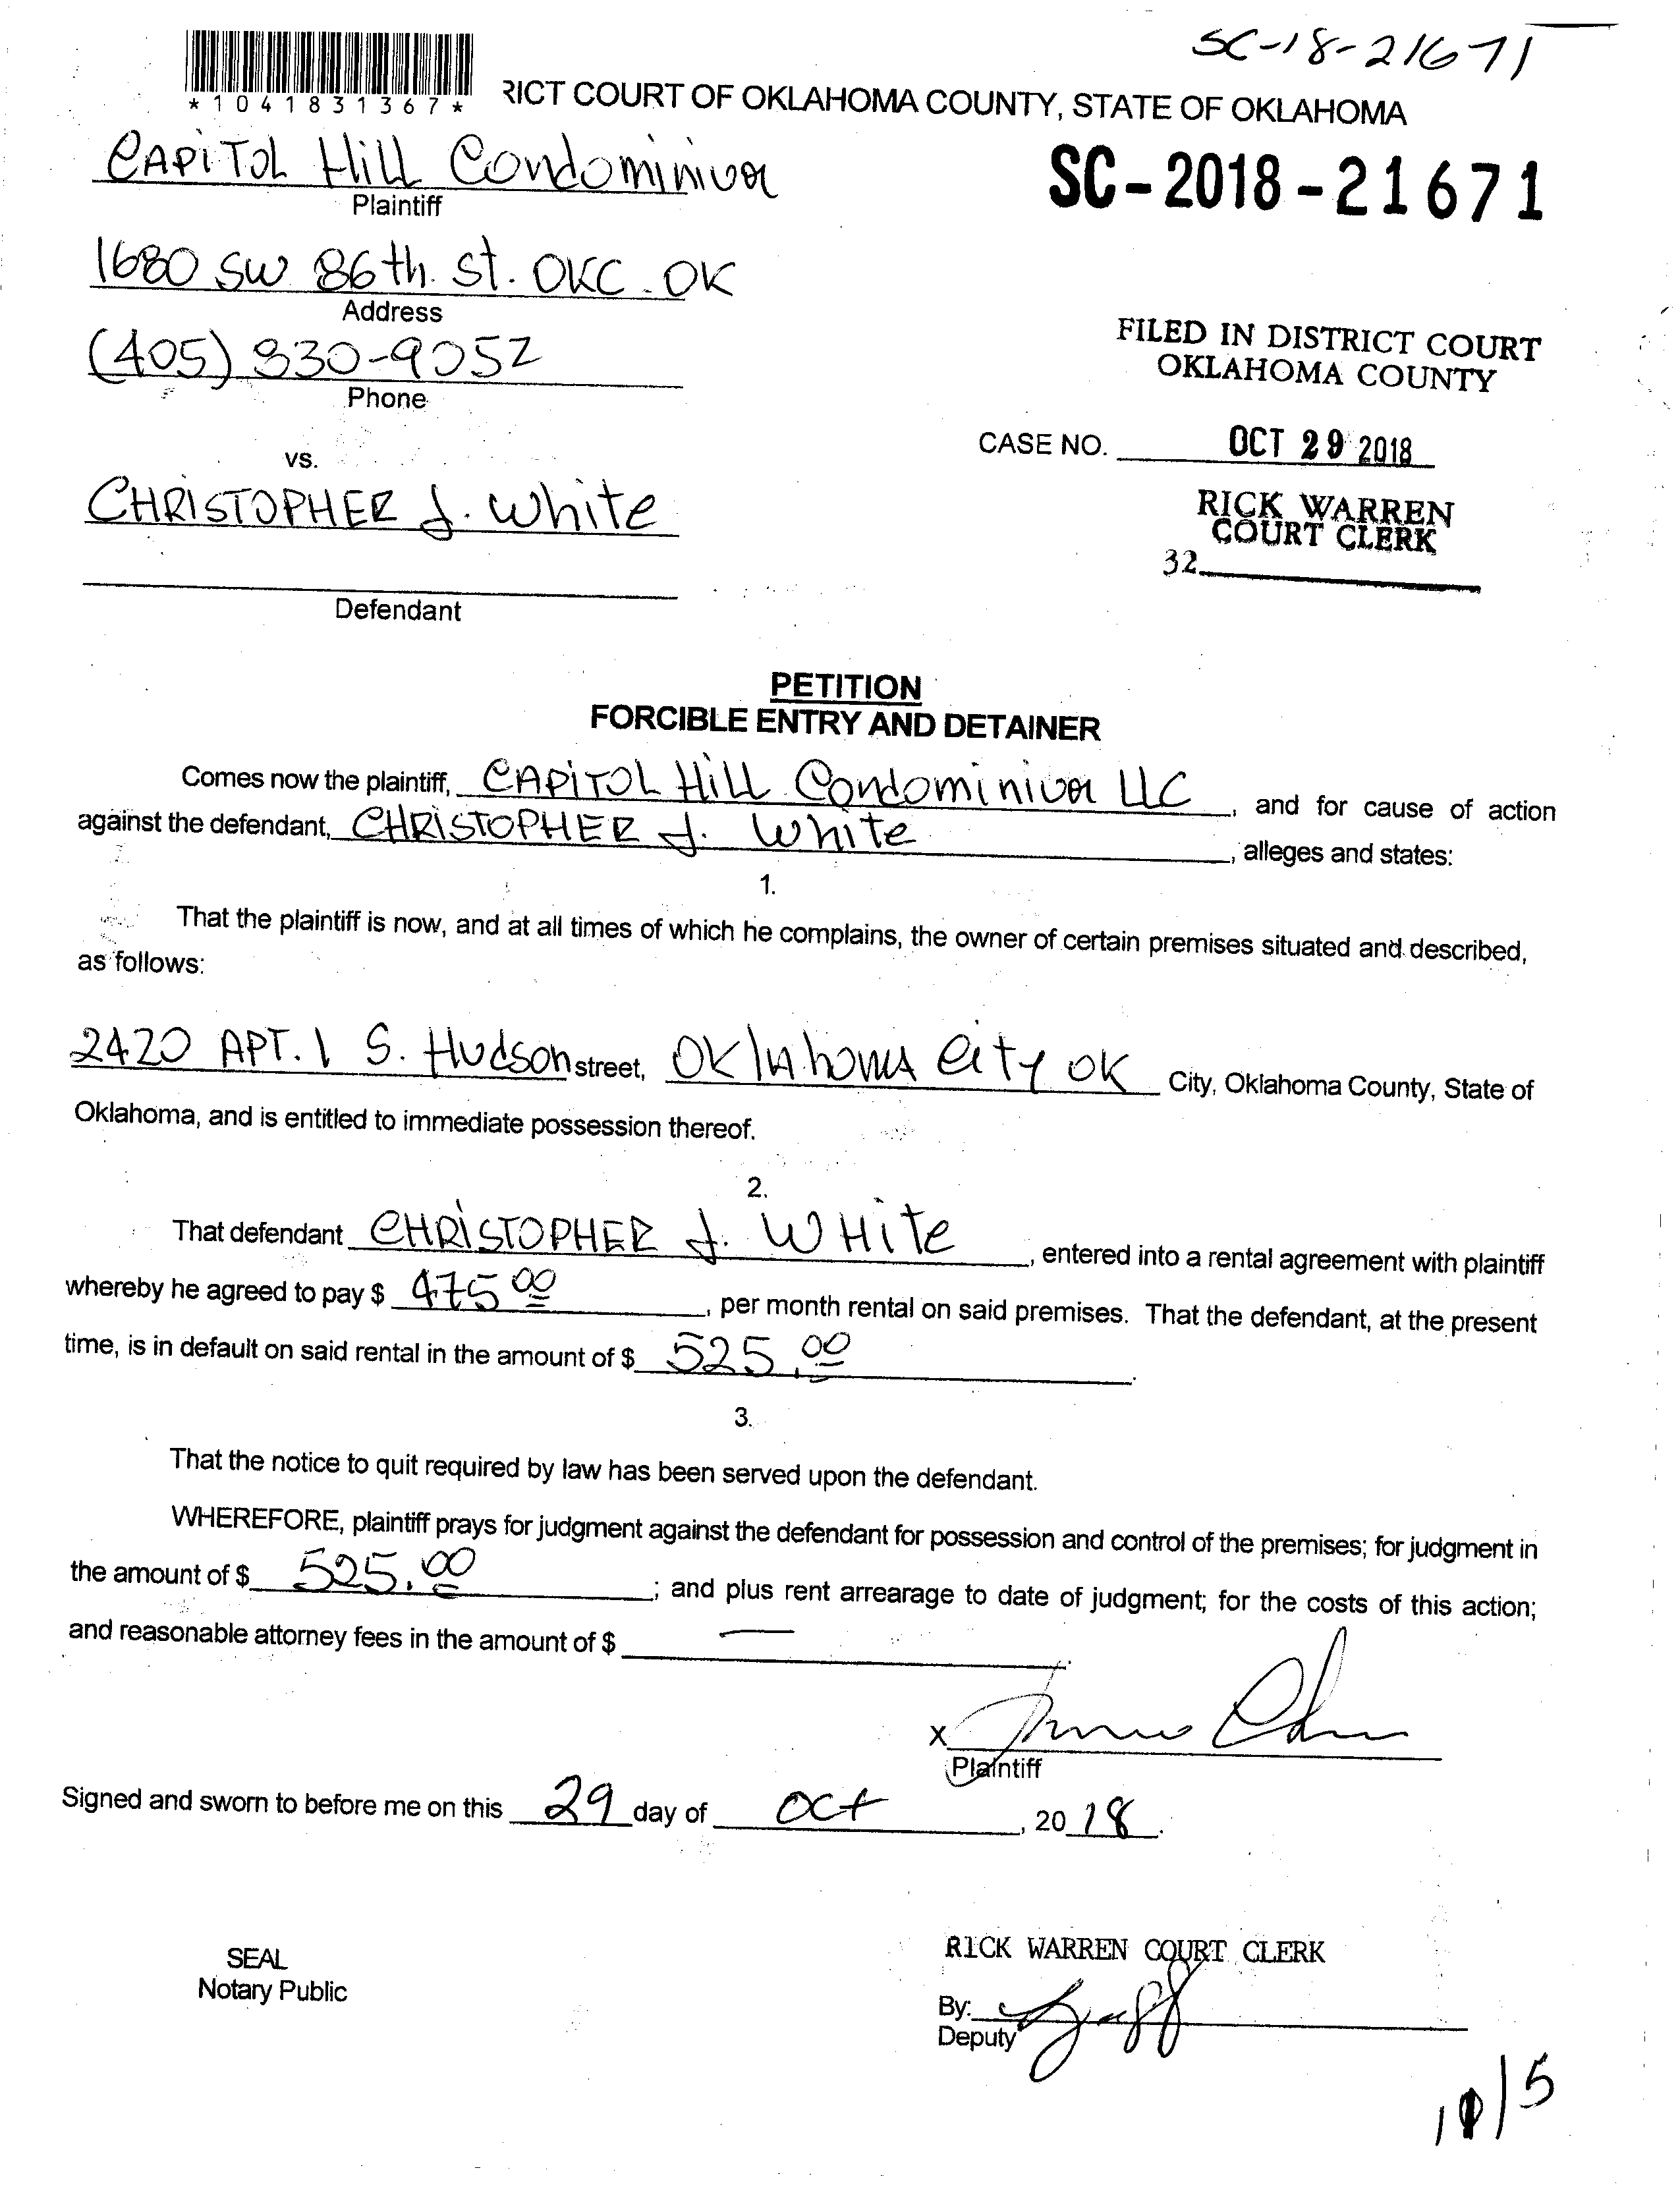 SC-18-21671
*1041831367*
RICT COURT OF OKLAHOMA COUNTY, STATE OF OKLAHOMA
CAPiTOL HiLL Condominium
Plaintiff
SC-2018-21671
1680 SW 86th. St. OKC. OK
Address
FILED IN DISTRICT COURT
OKLAHOMA COUNTY
(405) 830-9052
Phone
CASE NO. OCT 29 2018
vs.
CHRISTOPHER J. White
RICK WARREN
COURT CLERK
32
Defendant
PETITION
FORCIBLE ENTRY AND DETAINER
Comes now the plaintiff, CAPiTOL HiLL Condominium LLC, and for cause of action
against the defendant, CHRISTOPHER J. White, alleges and states:
1.
That the plaintiff is now, and at all times of which he complains, the owner of certain premises situated and described,
as follows:
2420 APT. 1 S. Hudson street, Oklahoma City OK City, Oklahoma County, State of
Oklahoma, and is entitled to immediate possession thereof.
2.
That defendant CHRISTOPHER J. WHite, entered into a rental agreement with plaintiff
whereby he agreed to pay $ 475 00, per month rental on said premises. That the defendant, at the present
time, is in default on said rental in the amount of $ 525.00.
3.
That the notice to quit required by law has been served upon the defendant.
WHEREFORE, plaintiff prays for judgment against the defendant for possession and control of the premises; for judgment in
the amount of $ 525.00; and plus rent arrearage to date of judgment; for the costs of this action;
and reasonable attorney fees in the amount of $ —.
X
Plaintiff
Signed and sworn to before me on this 29 day of Oct, 2018.
SEAL
Notary Public
RICK WARREN COURT CLERK
By:
Deputy